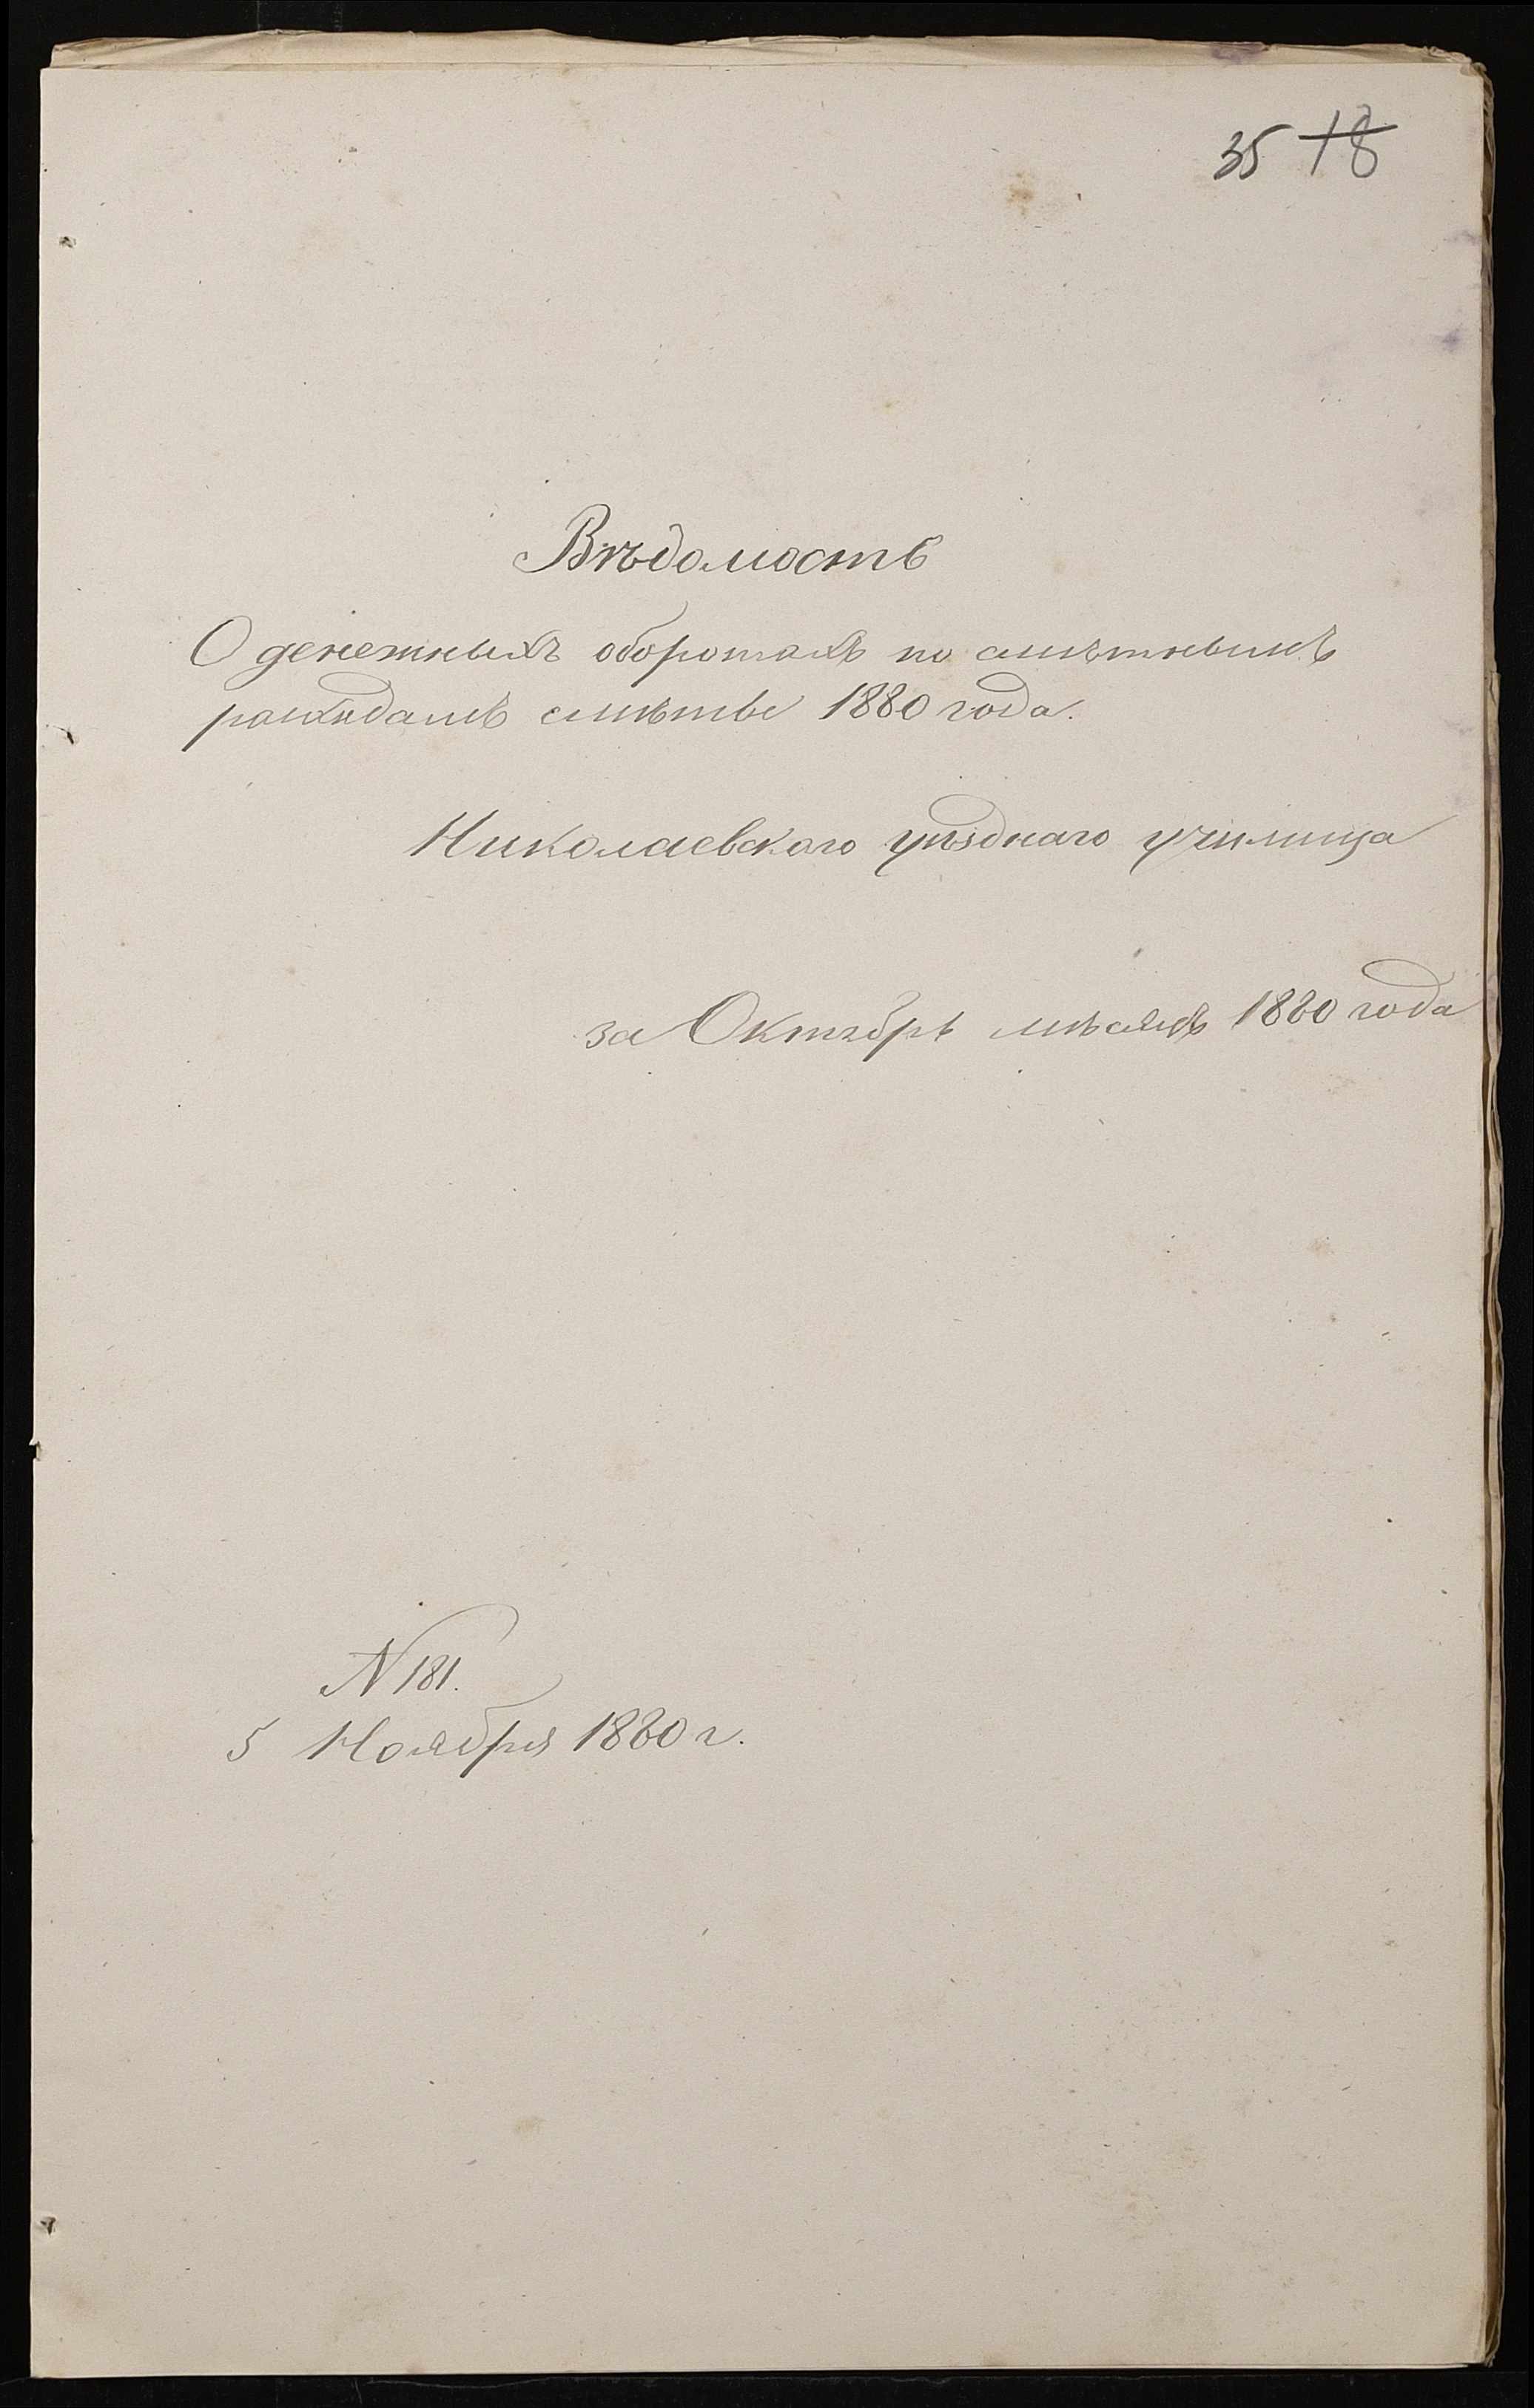 35 18
Вѣдомость
О денежныхъ оборотахъ по смѣтнымъ
расходамъ смѣты 1880 года.
Николаевскаго уѣзднаго училища
за Октябрь мѣсяцъ 1880 года
N 181.
5 Ноября 1880 г.